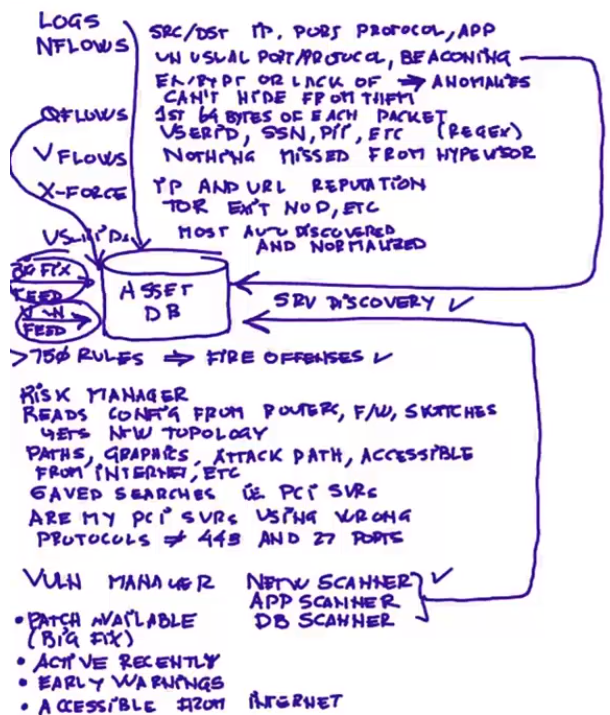 LOGS
NFLOWS
SRC/DST IP, PORT PROTOCOL, APP
UNUSUAL PORT/PROTOCOL, BEACONING
ENCRYPT OR LACK OF → ANOMALIES
CAN'T HIDE FROM THEM
QFLOWS 1ST 64 BYTES OF EACH PACKET
USERID, SSN, PII, ETC (REGEX)
VFLOWS NOTHING MISSED FROM HYPEVISOR
X-FORCE IP AND URL REPUTATION
TOR EXIT NOD, ETC
MOST AUTO DISCOVERED
AND NORMALIZED
BIG FIX
FEED
VLN
FEED
ASSET
DB
SRV DISCOVERY ✓
>750 RULES ⇒ FIRE OFFENSES ✓
RISK MANAGER
READS CONFIG FROM ROUTERS, F/W, SWITCHES
GETS N/W TOPOLOGY
PATHS, GRAPHICS, ATTACK PATH, ACCESSIBLE
FROM INTERNET, ETC
SAVED SEARCHES IE PCI SVRS
ARE MY PCI SVRS USING WRONG
PROTOCOLS ≠ 443 AND 27 PORTS
VULN MANAGER NETW SCANNER ✓
APP SCANNER
DB SCANNER
• PATCH AVAILABLE
(BIG FIX)
• ACTIVE RECENTLY
• EARLY WARNINGS
• ACCESSIBLE FROM INTERNET